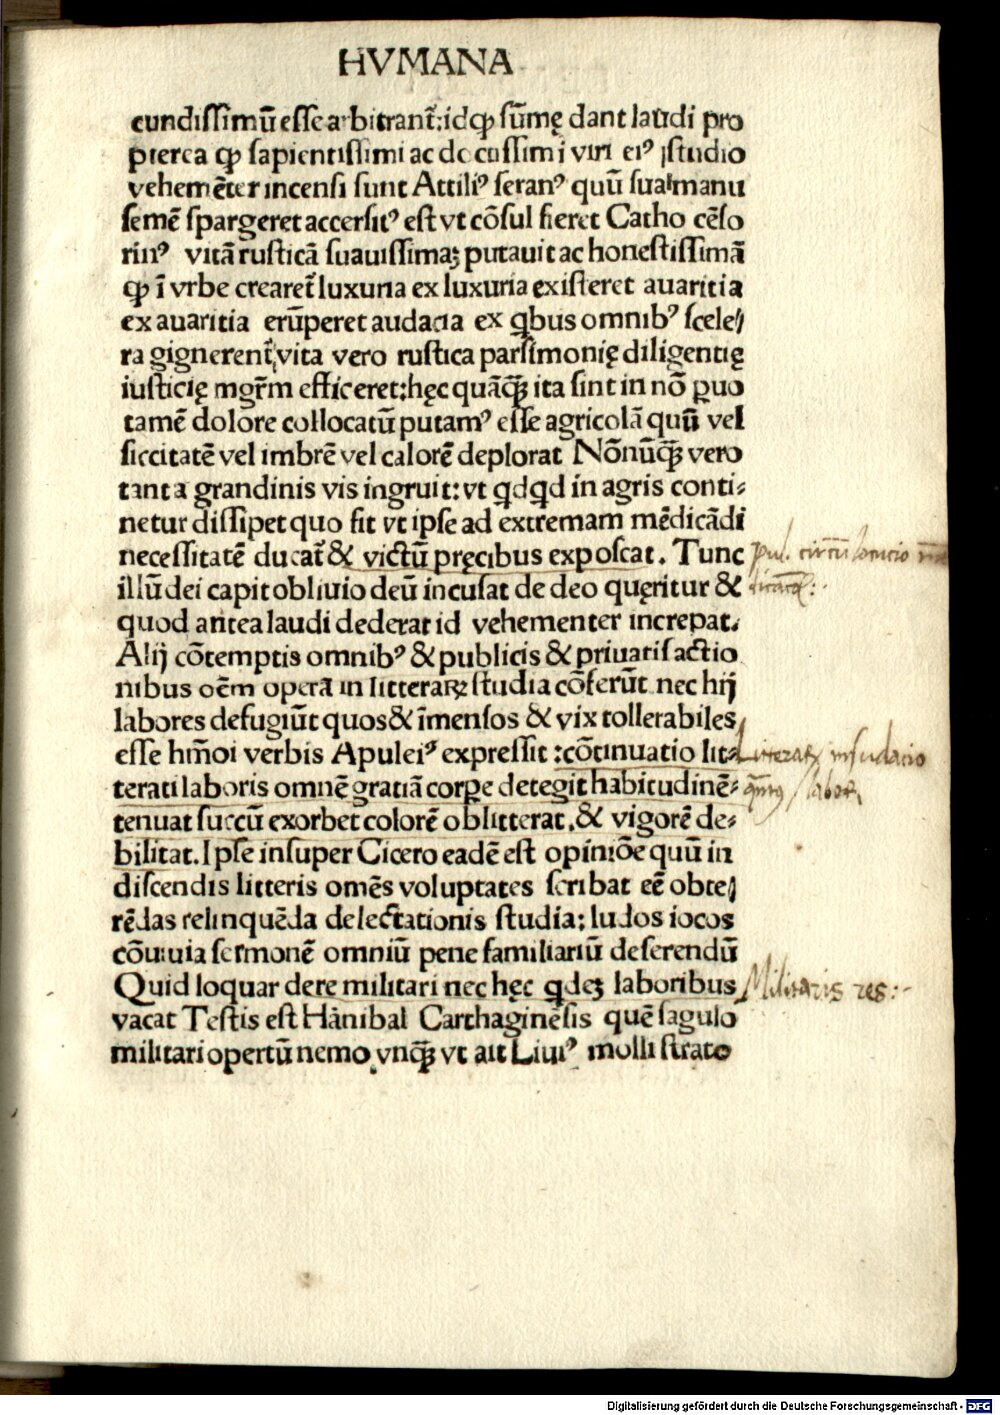 HVMANA
cundissimū esse arbitrant᷑: idqꝫ sūmę dant laudi pro
pterea ꝙ sapientissimi ac doctissimi viri eiꝰ studio
vehemēter incensi sunt Attiliꝰ seranꝰ quū sua manu
semē spargeret accersitꝰ est vt cōsul fieret Catho cēso
rinꝰ vitā rusticā suauissimaꝫ putauit ac honestissimā
ꝙ ī vrbe crearet᷑ luxuria ex luxuria existeret auaritia
ex auaritia erūperet audacia ex qbus omnibꝰ scele⸗
ra gignerent᷑, vita vero rustica parsimonię diligentię
iusticię mgr̄m efficeret: hęc quāqꝫ ita sint in nō ꝑuo
tamē dolore collocatū putamꝰ esse agricolā quū vel
siccitatē vel imbrē vel calorē deplorat Nōnūqꝫ vero
tanta grandinis vis ingruit: vt qdqd in agris conti⸗
netur dissipet quo fit vt ipse ad extremam mēdicādi
necessitatē ducat᷑ & victū pręcibus exposcat. Tunc
illū dei capit obliuio deū incusat de deo quęritur &
quod antea laudi dederat id vehementer increpat.
Alij cōtemptis omnibꝰ & publicis & priuatis actio
nibus oēm operā in litteraꝝ studia cōferūt nec hij
labores defugiūt quos & īmensos & vix tollerabiles
esse hm̄oi verbis Apuleiꝰ expressit: cōtinuatio lit⸗
terati laboris omnē gratiā corꝑe detegit habitudinē⸗
tenuat succū exorbet colorē oblitterat, & vigorē de⸗
bilitat. Ipse insuper Cicero eadē est opinióe quū in
discendis litteris omēs voluptates scribat eē obte⸗
rēdas relinquēda delectationis studia: ludos iocos
cōuiuia sermonē omniū pene familiariū deserendū
Quid loquar de re militari nec hęc qdeꝫ laboribus
vacat Testis est Hānibal Carthaginēsis quē sagulo
militari opertū nemo vnqꝫ vt ait Liuiꝰ molli strato
Litteraꝝ insudacio
Militaris res: